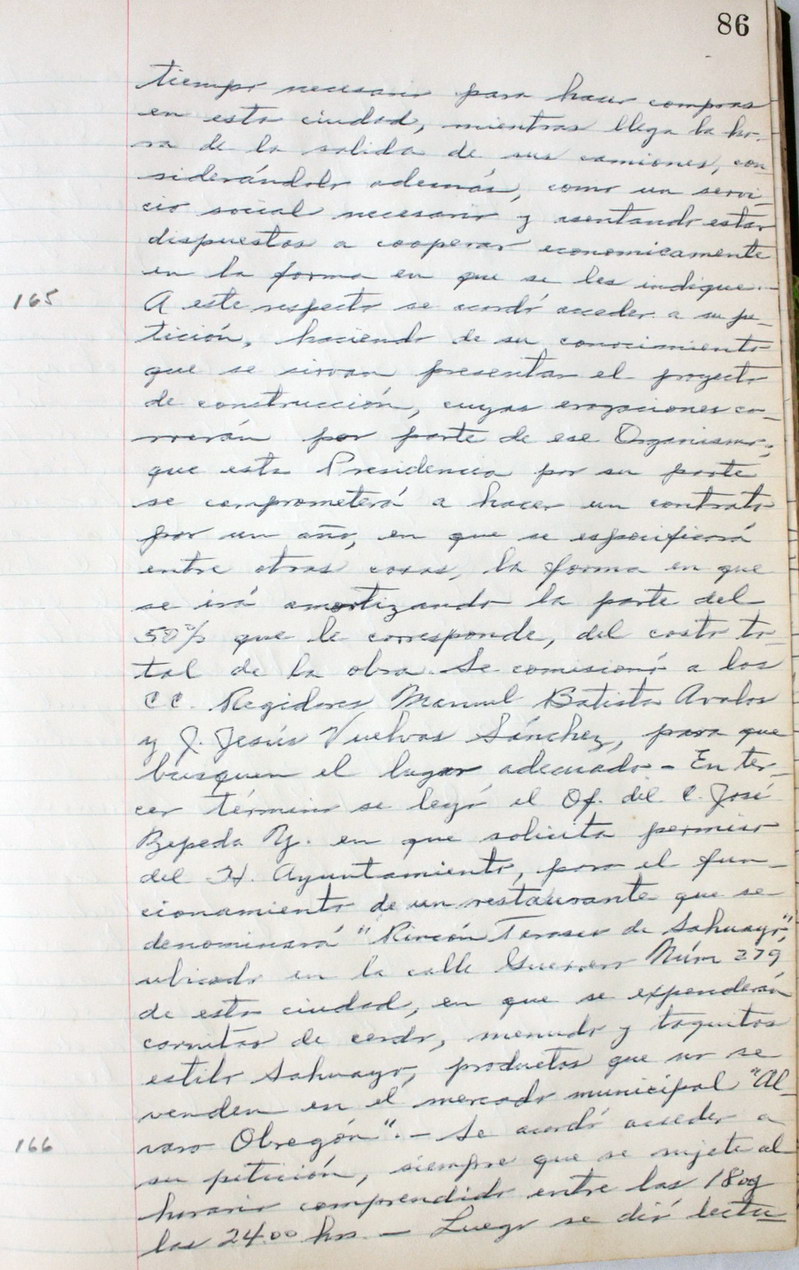 86
tiempo necesario para hacer compras
en esta ciudad, mientras llega la ho-
ra de la salida de sus camiones, con-
siderándolo además, como un servi-
cio social necesario y asentando estar
dispuestos a cooperar economicamente
en la forma en que se les indique.-
165
A este respecto se acordó acceder a su pe-
tición, haciendo de su conocimiento
que se sirvan presentar el proyecto
de construcción, cuyas erogaciones co-
rrerán por parte de ese Organismo;
que esta Presidencia por su parte
se comprometerá a hacer un contrato
por un año, en que se especificará
entre otras cosas, la forma en que
se irá amortizando la parte del
50% que le corresponde, del costo to-
tal de la obra. Se comisionó a los
CC. Regidores Manuel Batista Avalos
y J. Jesús Vuelvas Sánchez, para que
busquen el lugar adecuado - En ter-
cer término se leyó el Of. del C. José
Zepeda Y. en que solicita permiso
del H. Ayuntamiento, para el fun-
cionamiento de un restaurante que se
denominará "Rincón Tarasco de Sahuayo",
ubicado en la calle Guerrero Núm 279
de esta ciudad, en que se expenderán
carnitas de cerdo, menudo y taquitos
estilo Sahuayo, productos que no se
venden en el mercado municipal "Al-
varo Obregón". - Se acordó acceder a
166
su petición, siempre que se sujete al
horario comprendido entre las 18 y
las 24.00 hrs. - Luego se dió lectu-